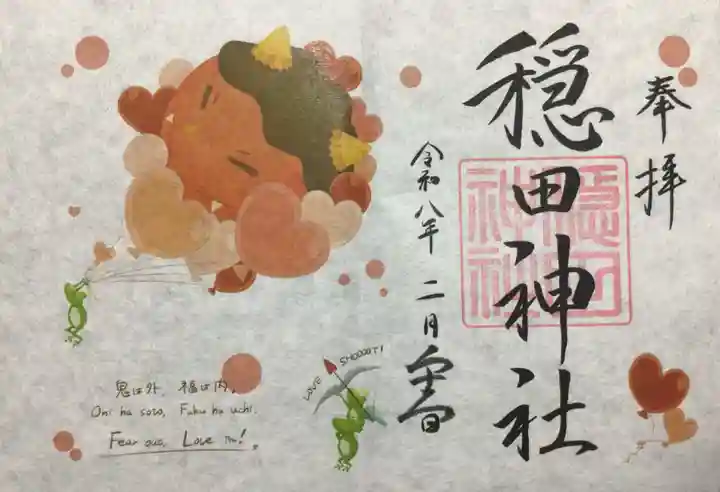 奉拝
穏田神社
令和八年 二月
LOVE SHOOOOT!
鬼は外、福は内。
Oni ha soto, Fuku ha uchi.
Fear out, Love in!